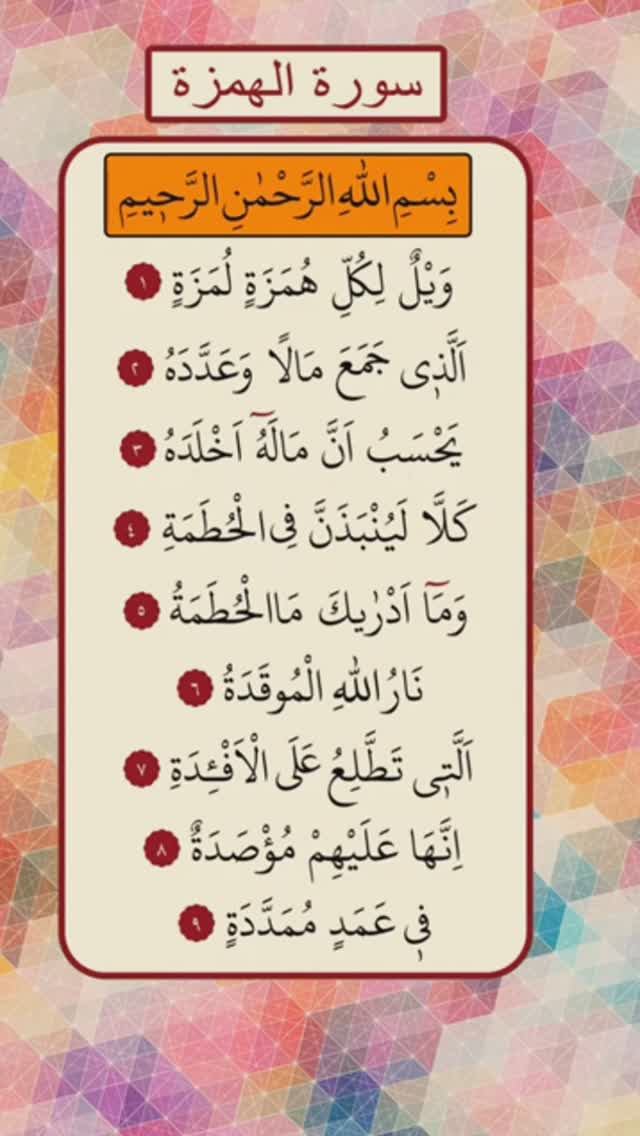 سورة الهمزة
بِسْمِ اللهِ الرَّحْمٰنِ الرَّحٖيمِ
وَيْلٌ لِكُلِّ هُمَزَةٍ لُمَزَةٍ ١
اَلَّذٖى جَمَعَ مَالًا وَعَدَّدَهُ ٢
يَحْسَبُ اَنَّ مَالَهُٓ اَخْلَدَهُ ٣
كَلَّا لَيُنْبَذَنَّ فِى الْحُطَمَةِ ٤
وَمَٓا اَدْرٰيكَ مَا الْحُطَمَةُ ٥
نَارُ اللهِ الْمُوقَدَةُ ٦
اَلَّتٖى تَطَّلِعُ عَلَى الْاَفْـِٔدَةِ ٧
اِنَّهَا عَلَيْهِمْ مُؤْصَدَةٌ ٨
فٖى عَمَدٍ مُمَدَّدَةٍ ٩